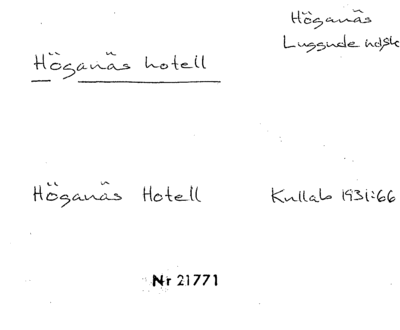 Höganäs
Luggude hdsk
Höganäs hotell
Höganäs Hotell Kullab 1931:66
Nr 21771